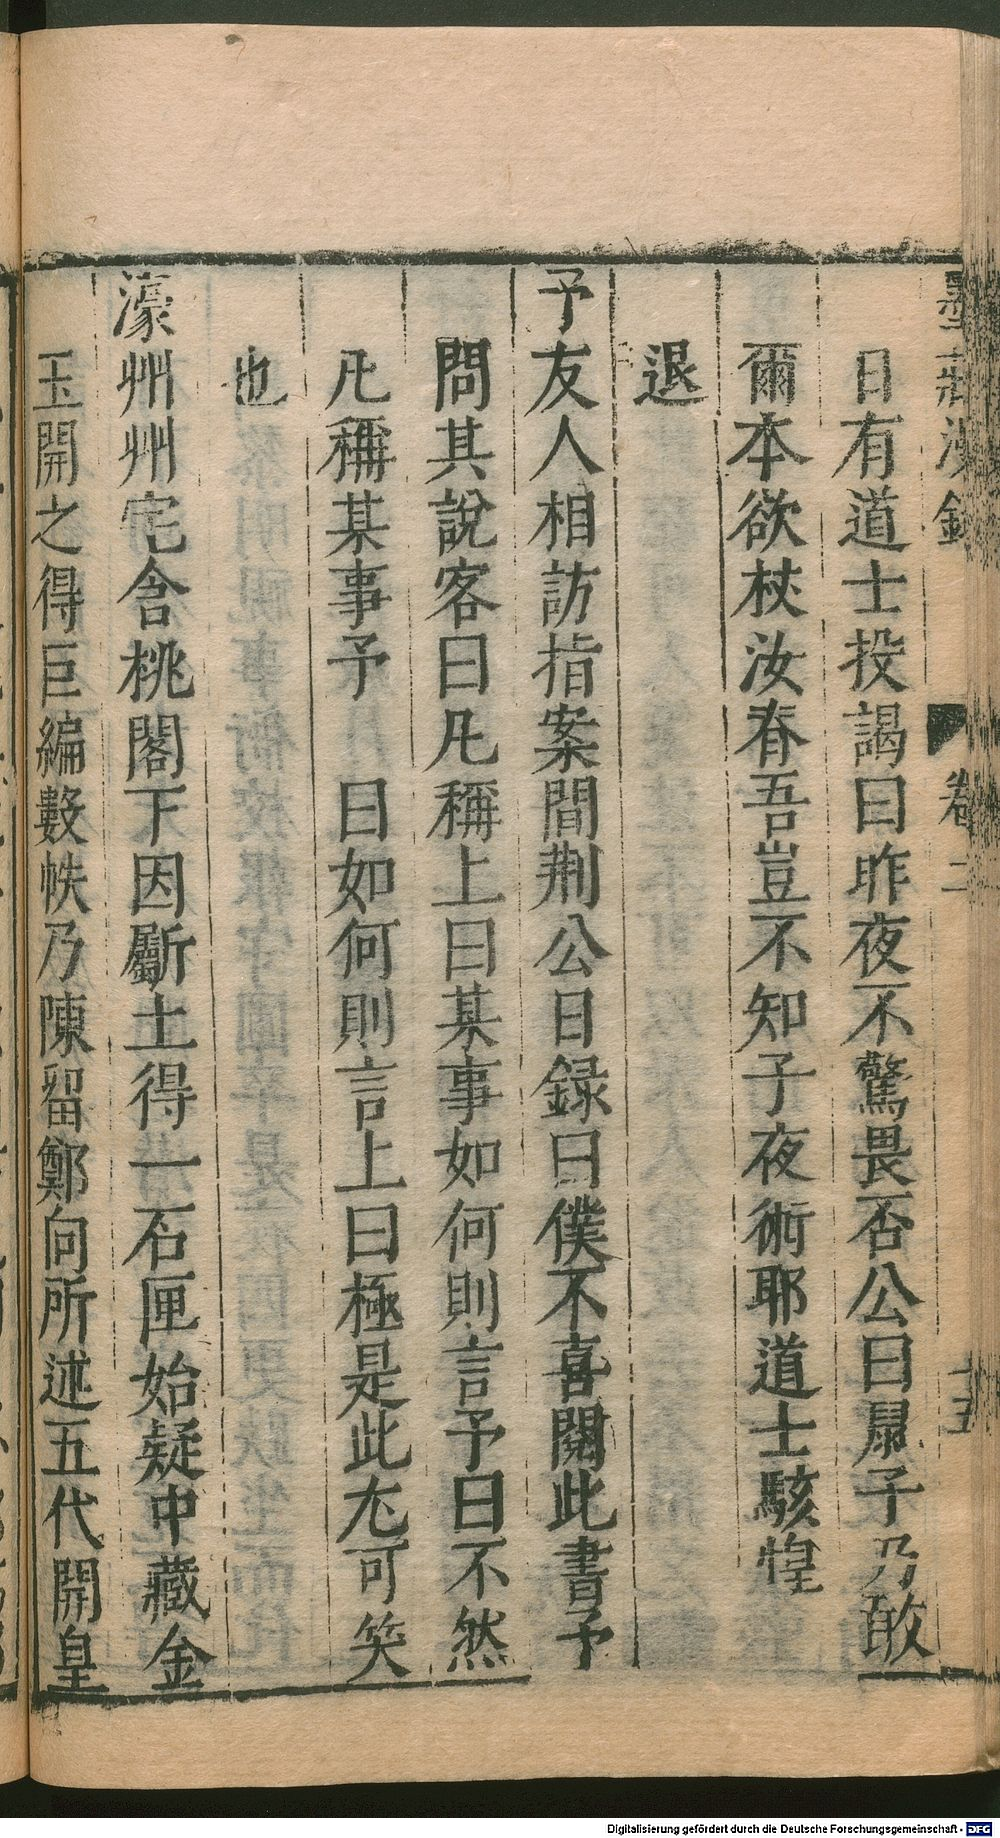 墨莊漫錄 卷二 十五
日有道士投謁曰昨夜不驚畏否公曰鼎子乃敢
爾本欲杖汝脊吾豈不知子夜術耶道士駭惶
退
予友人相訪指案間荆公日録曰僕不喜閱此書予
問其說客曰凡稱上曰某事如何則言予曰不然
凡稱某事予 曰如何則言上曰極是此尤可笑
也
濠州州宅含桃閣下因斸土得一石匣始疑中藏金
玉開之得巨編數帙乃陳留鄭向所述五代開皇
Digitalisierung gefördert durch die Deutsche Forschungsgemeinschaft - DFG